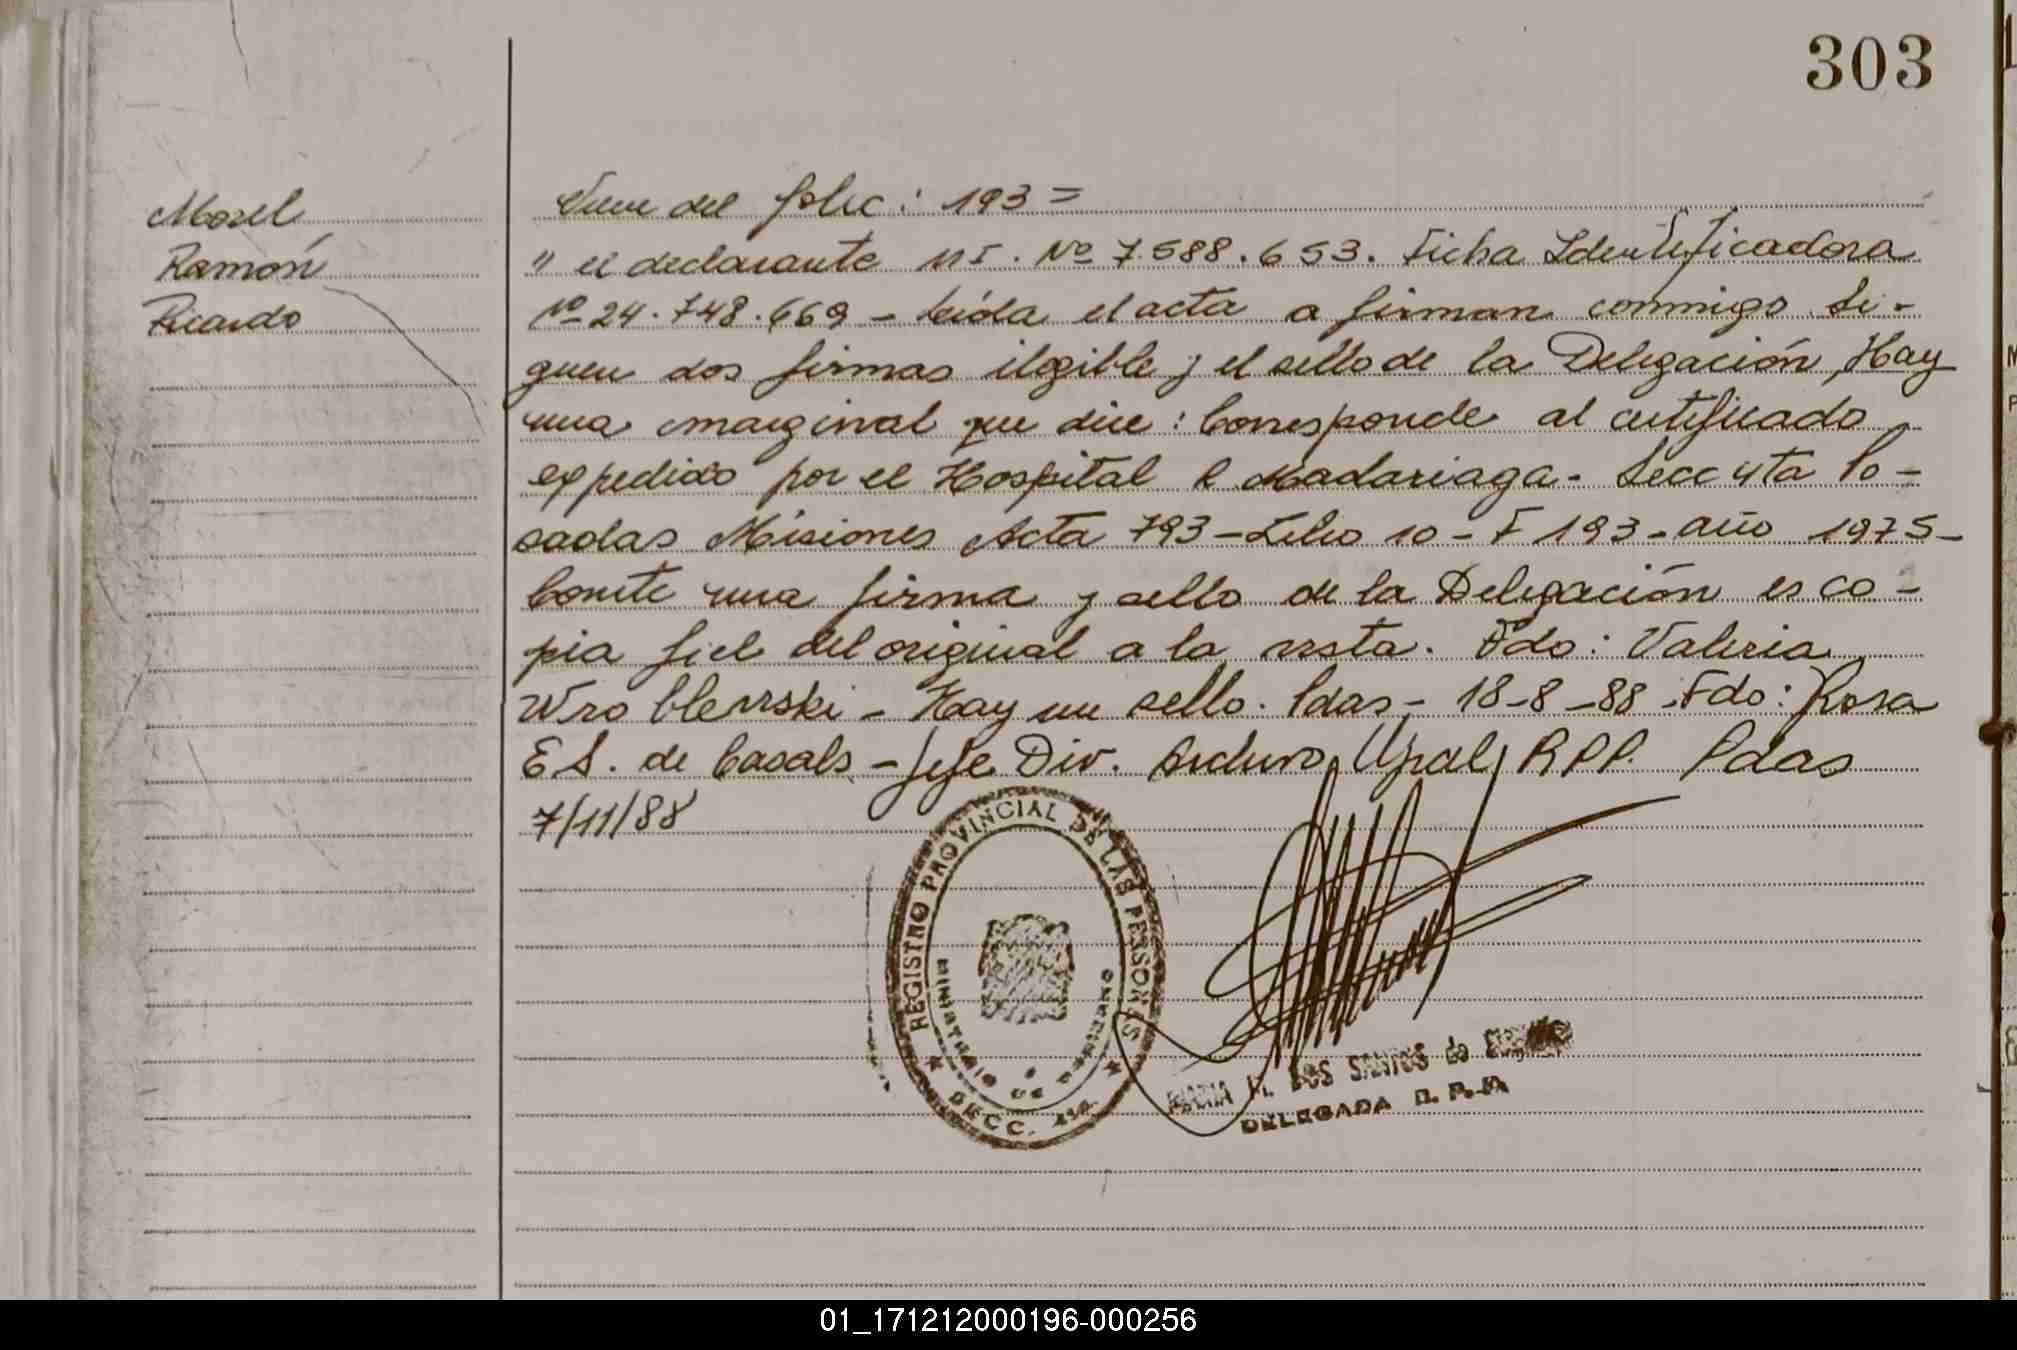 303
Morel
Ramón
Ricardo
Viene del folio: 193=
" el declarante MI. Nº 7.588.653. Ficha Identificadora
Nº 24.748.669 - Leída el acta a firman conmigo Si-
guen dos firmas ilegible y el sello de la Delegación, Hay
una marginal que dice: Corresponde al certificado
expedido por el Hospital R Madariaga. Secc 4ta Po-
sadas Misiones Acta 793 - Libro 10 - F 193 - año 1975 -
Conste una firma y sello de la Delegación es co-
pia fiel del original a la vista. Fdo: Valeria
Wroblewski - Hay un sello. Pdas - 18-8-88. Fdo: Rosa
E S. de Casals - Jefe Div. Archivo Gral RPP. Pdas
7/11/88
REGISTRO PROVINCIAL DE LAS PERSONAS
MINISTERIO DE GOBIERNO
SECC. 4ta.
MARIA DOS SANTOS de
DELEGADA R.P.P.
01_171212000196-000256